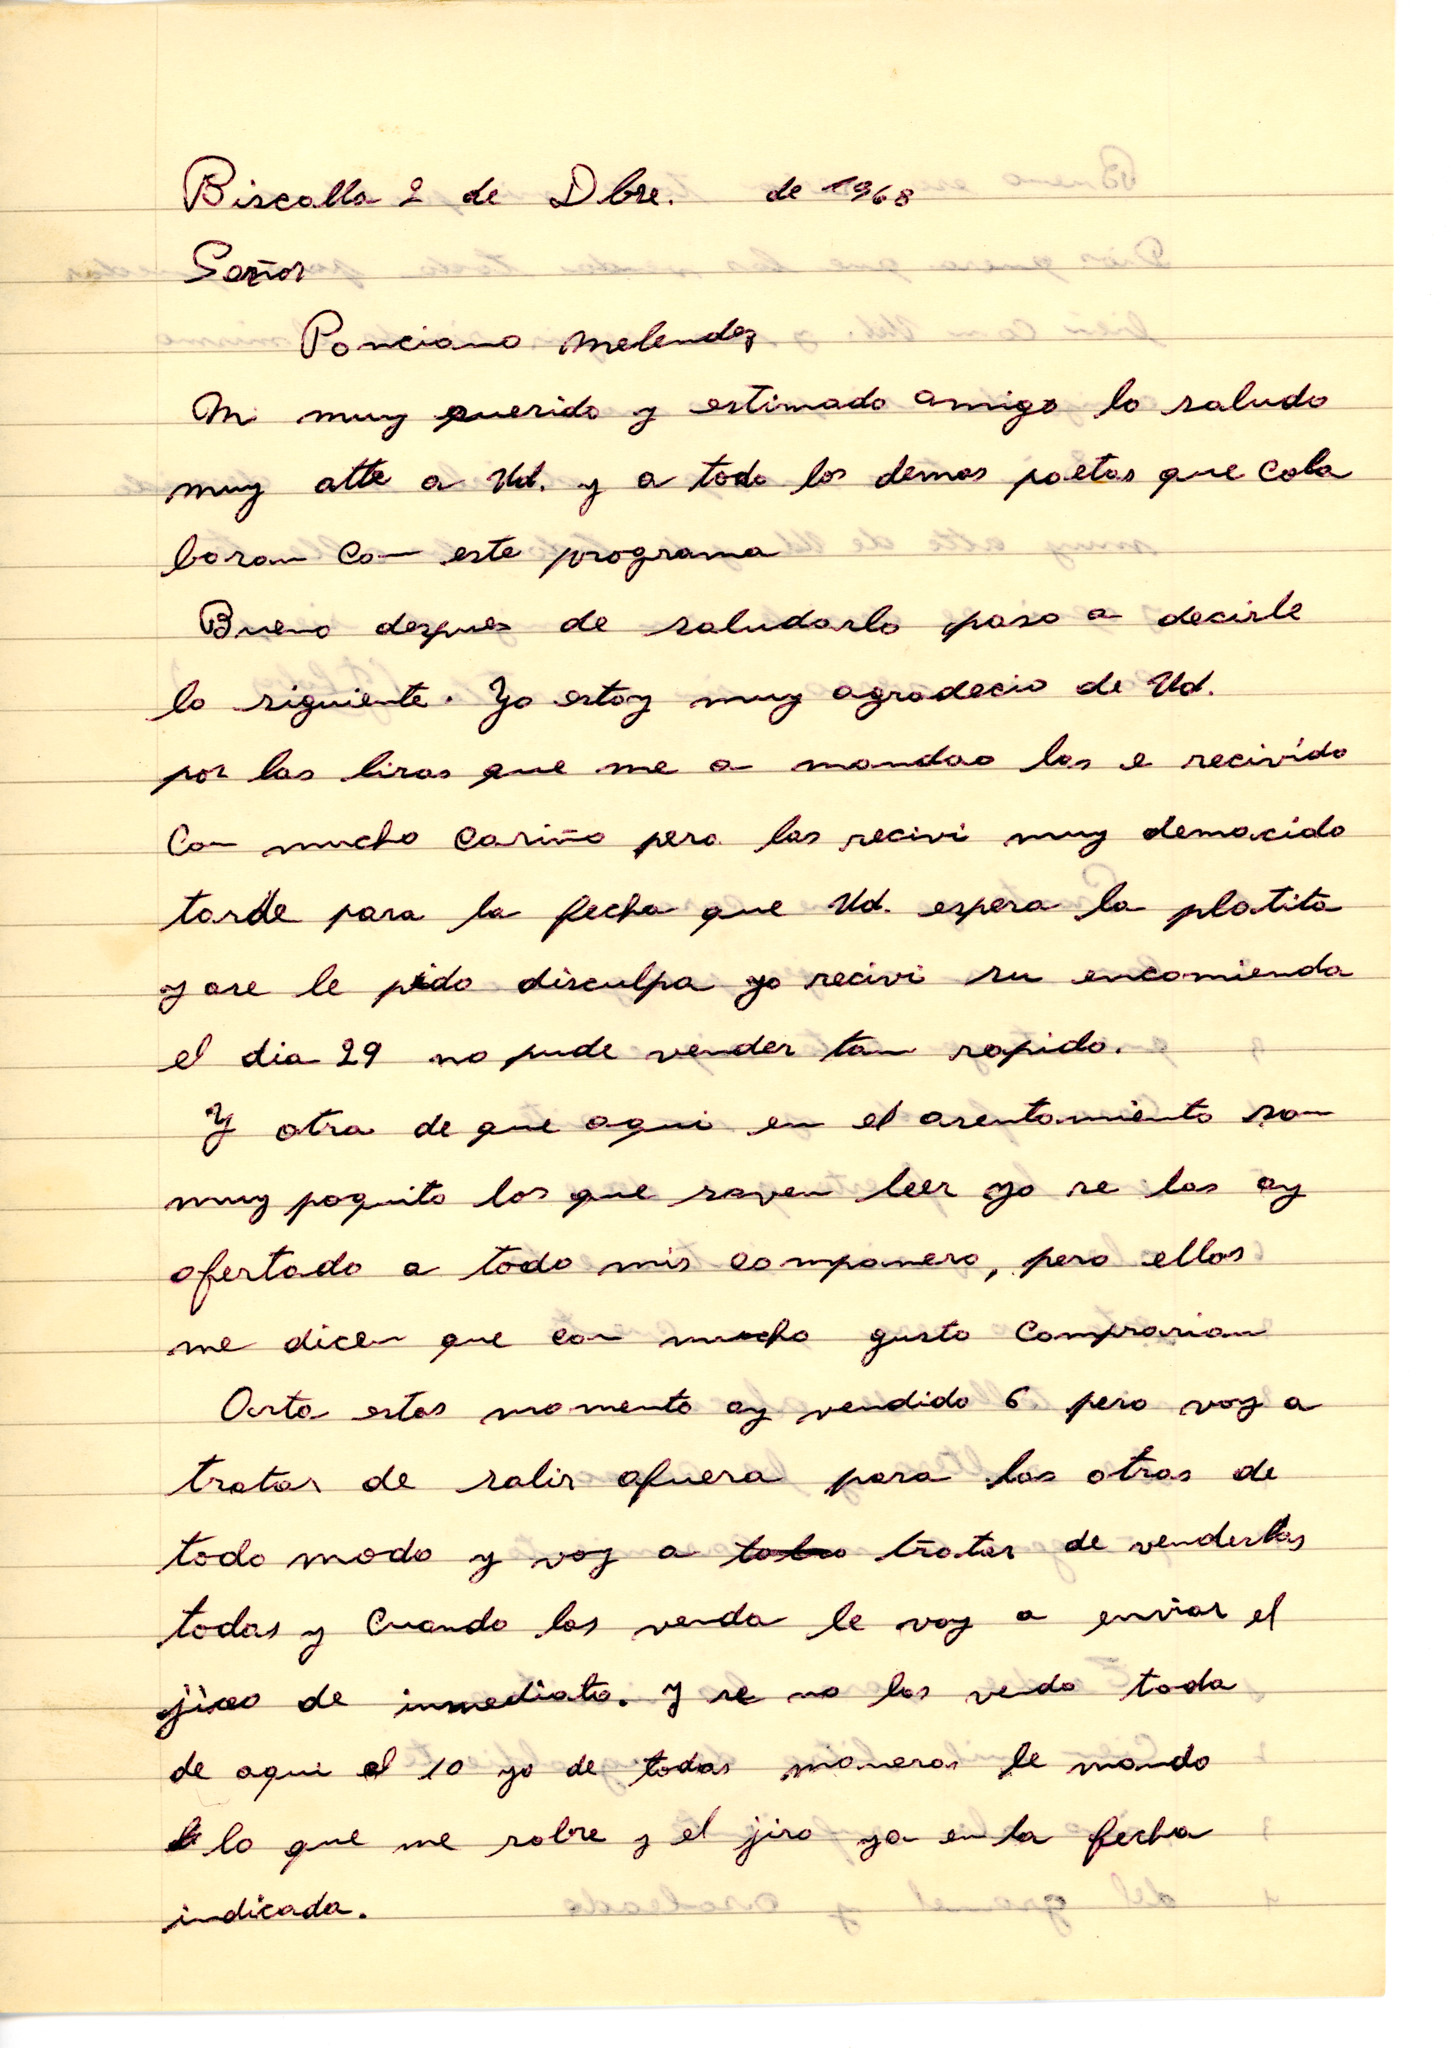 Biscalla 2 de Dbre. de 1968
Señor
Ponciano Melendez
Mi muy querido y estimado amigo lo saludo
muy atte a Ud. y a todo los demas poetas que cola
boran con este programa
Bueno despues de saludarlo paso a decirle
lo siguiente. Yo estoy muy agradecio de Ud.
por las liras que me a mandao las e recivido
con mucho cariño pero las recivi muy demacido
tarde para la fecha que Ud. espera la platita
y ase le pido disculpa yo recivi su encomienda
el dia 29 no pude vender tan rapido.
Y otra de que aqui en el asentamiento son
muy poquito los que saven leer yo se las oy
ofertado a todo mis companero, pero ellos
me dicen que con mucho gusto comprarian
Asta estos momento oy vendido 6 pero voy a
tratar de salir afuera para las otras de
todo modo y voy a tratar de venderlas
todas y cuando las venda le voy a enviar el
jiro de inmediato. Y se no las vendo toda
de aqui al 10 yo de todas maneras le mando
lo que me sobre y el jiro ya en la fecha
indicada.